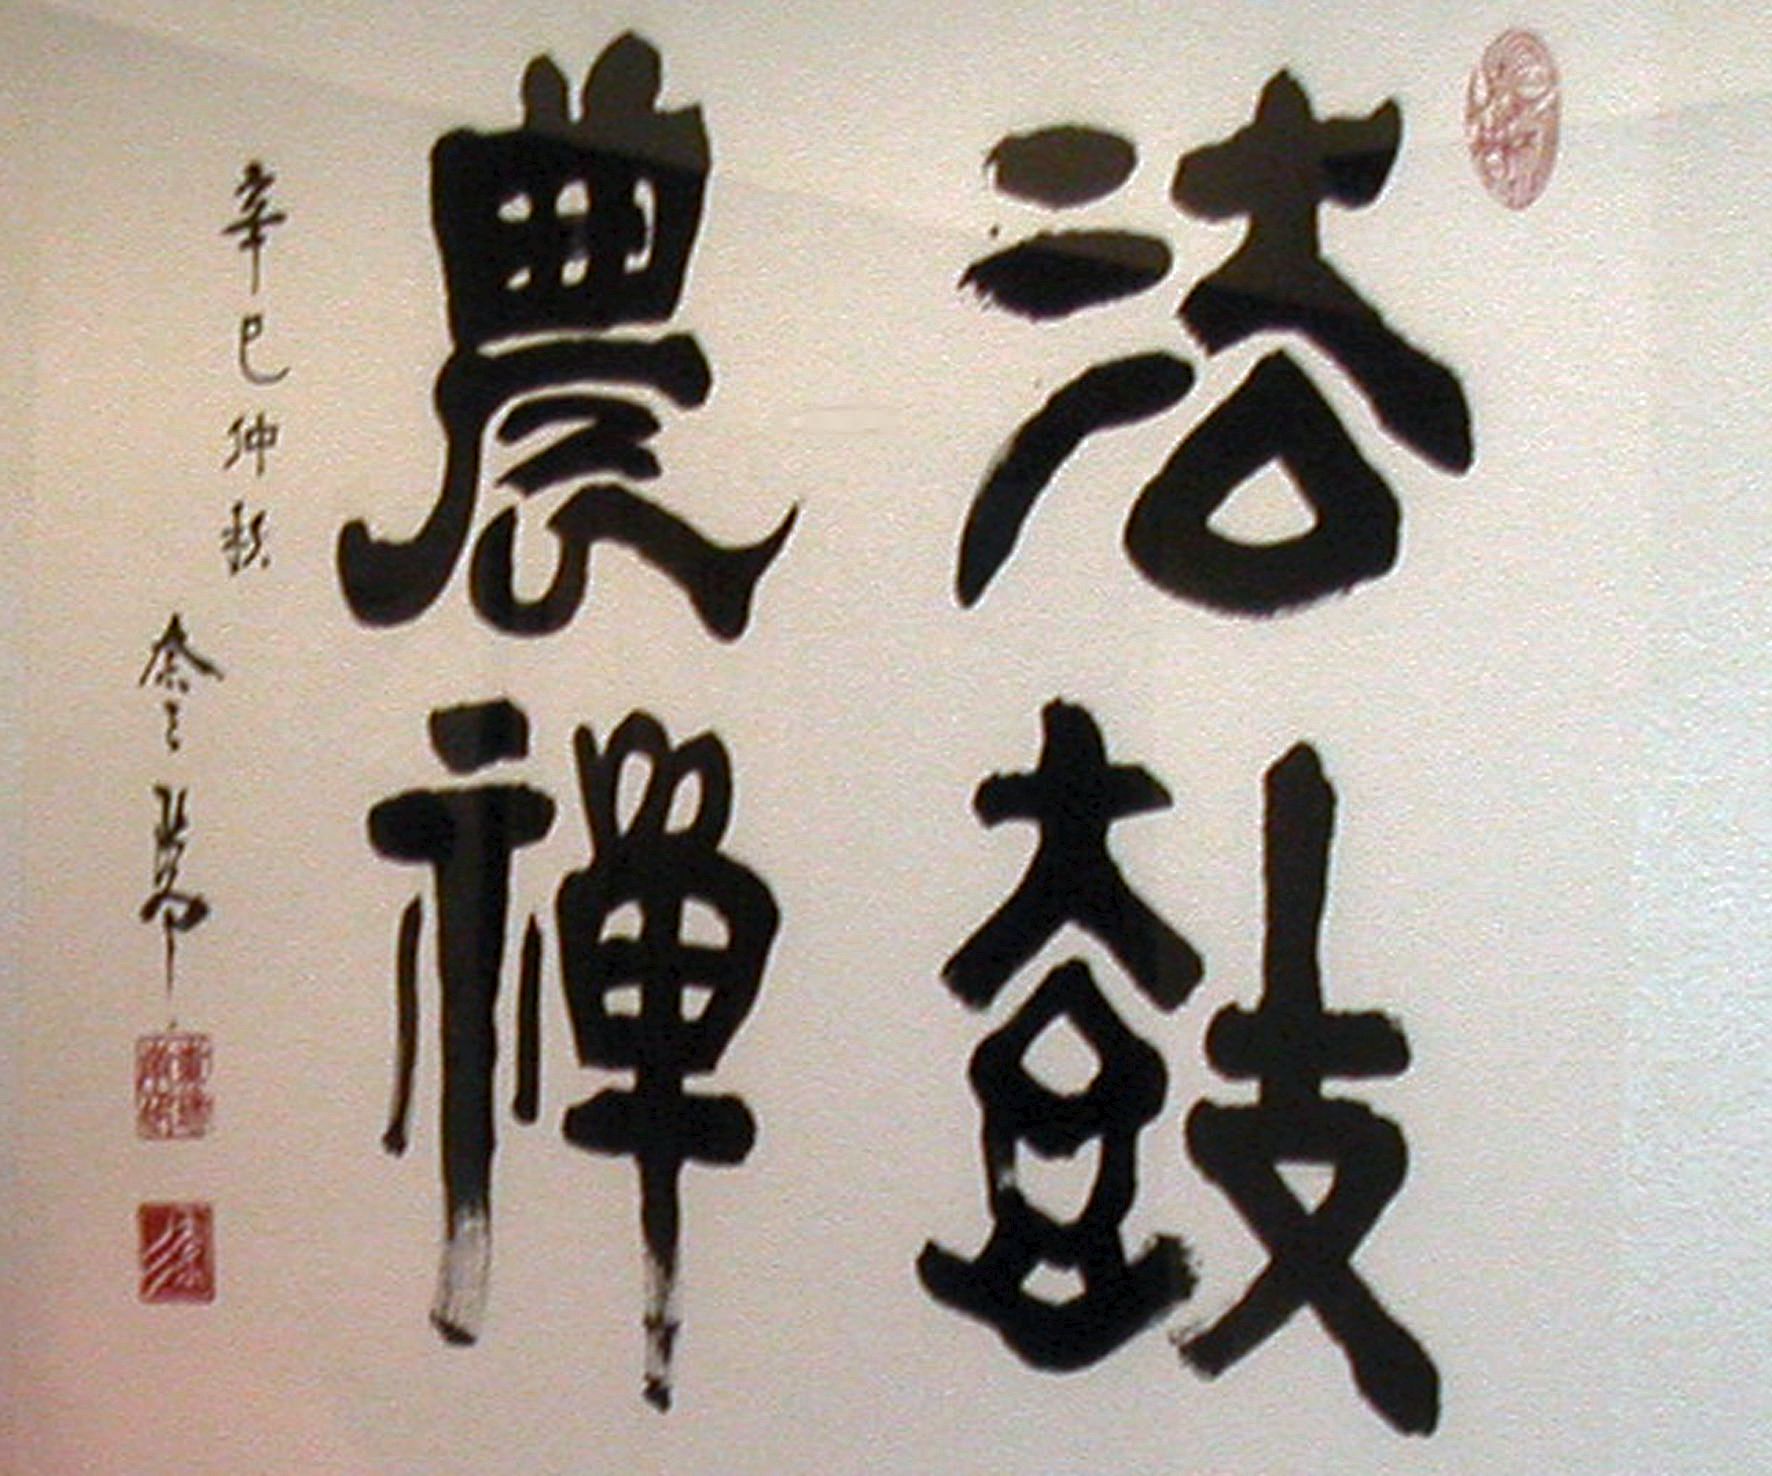 法鼓
農禪
辛巳仲秋